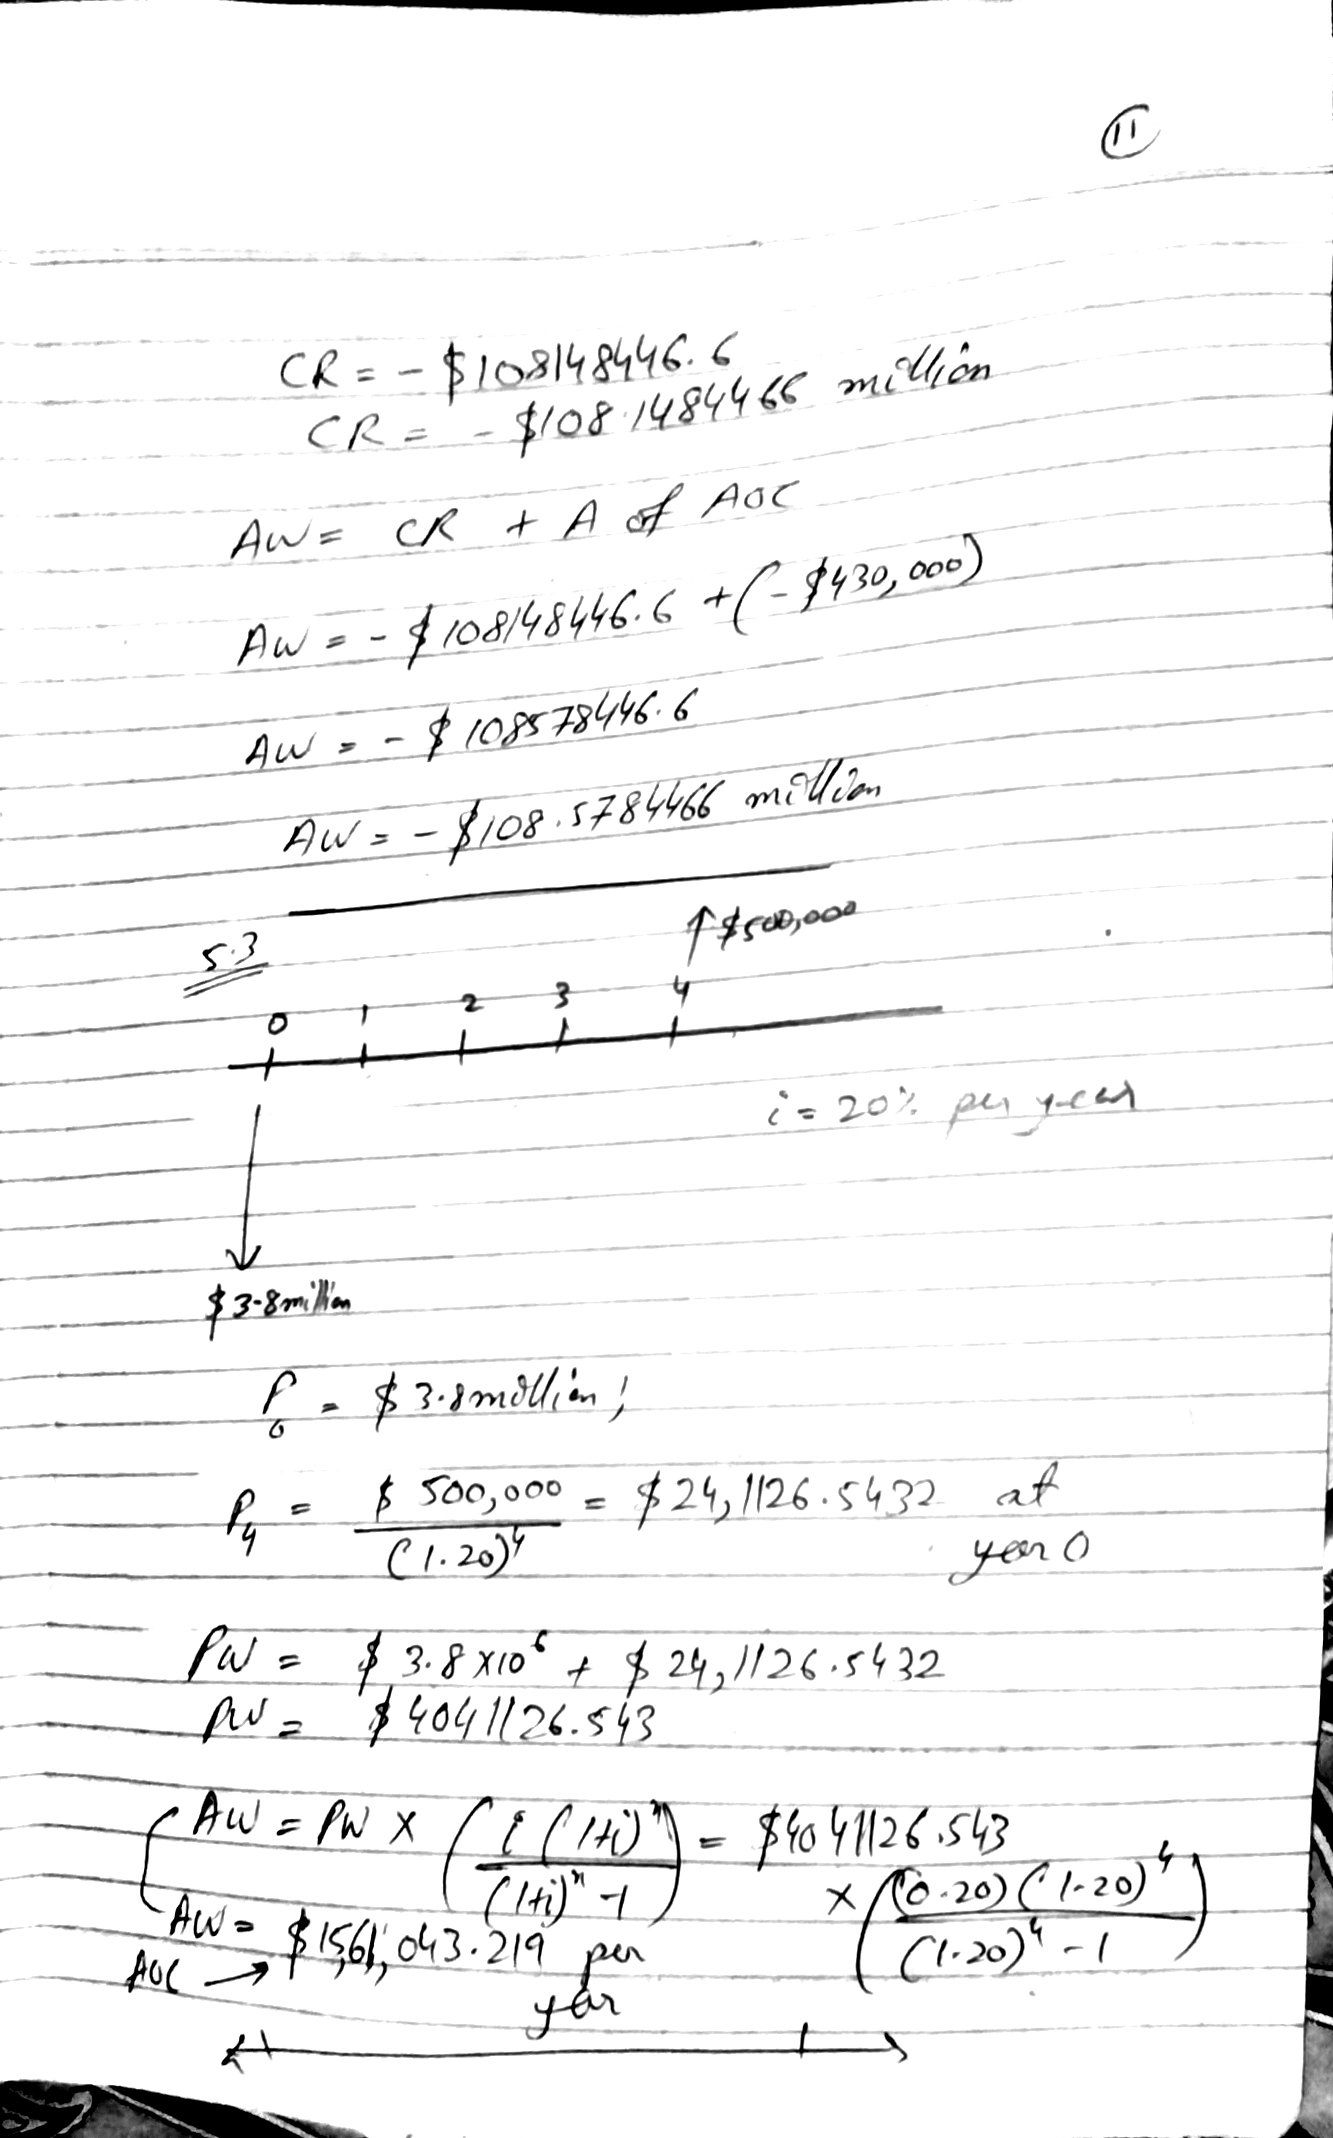 11
CR = - $108148446.6
CR = - $108.1484466 million
AW = CR + A of AOC
AW = - $108148446.6 + (- $430,000)
AW = - $108578446.6
AW = - $108.5784466 million
5.3
↑ $500,000
0 1 2 3 4
i = 20% per year
$3.8 million
P₀ = $3.8 million;
P₄ = $500,000 / (1.20)⁴ = $24,1126.5432 at
year 0
PW = $3.8 x10⁶ + $24,1126.5432
PW = $4041126.543
AW = PW x (i(1+i)ⁿ / (1+i)ⁿ - 1) = $4041126.543
x ((0.20)(1.20)⁴ / (1.20)⁴ - 1)
AW = $1561,043.219 per
AOC → year